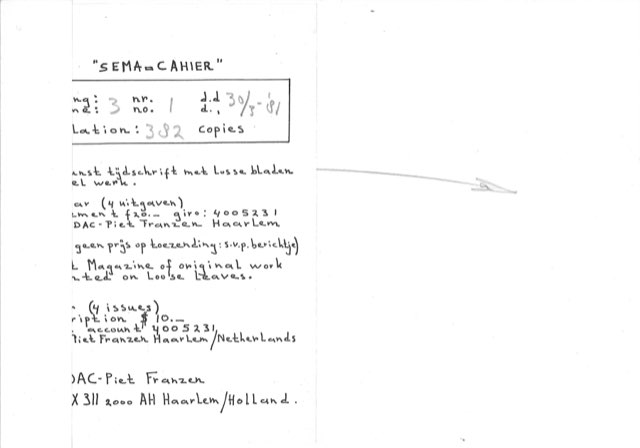 "SEMA=CAHIER"
ng: 3 nr. 1 d.d 30/3-'81
nd: no. d.,
lation: 382 copies
unst tijdschrift met losse bladen
el werk.
ar (4 uitgaven)
ment f20.- giro: 4005231
DAC-Piet Franzen Haarlem
geen prijs op toezending: s.v.p. berichtje)
t Magazine of original work
nted on Loose Leaves.
(4 issues)
ription $ 10.-
account 4005231
Piet Franzen Haarlem/Netherlands
DAC-Piet Franzen
X 311 2000 AH Haarlem/Holland.